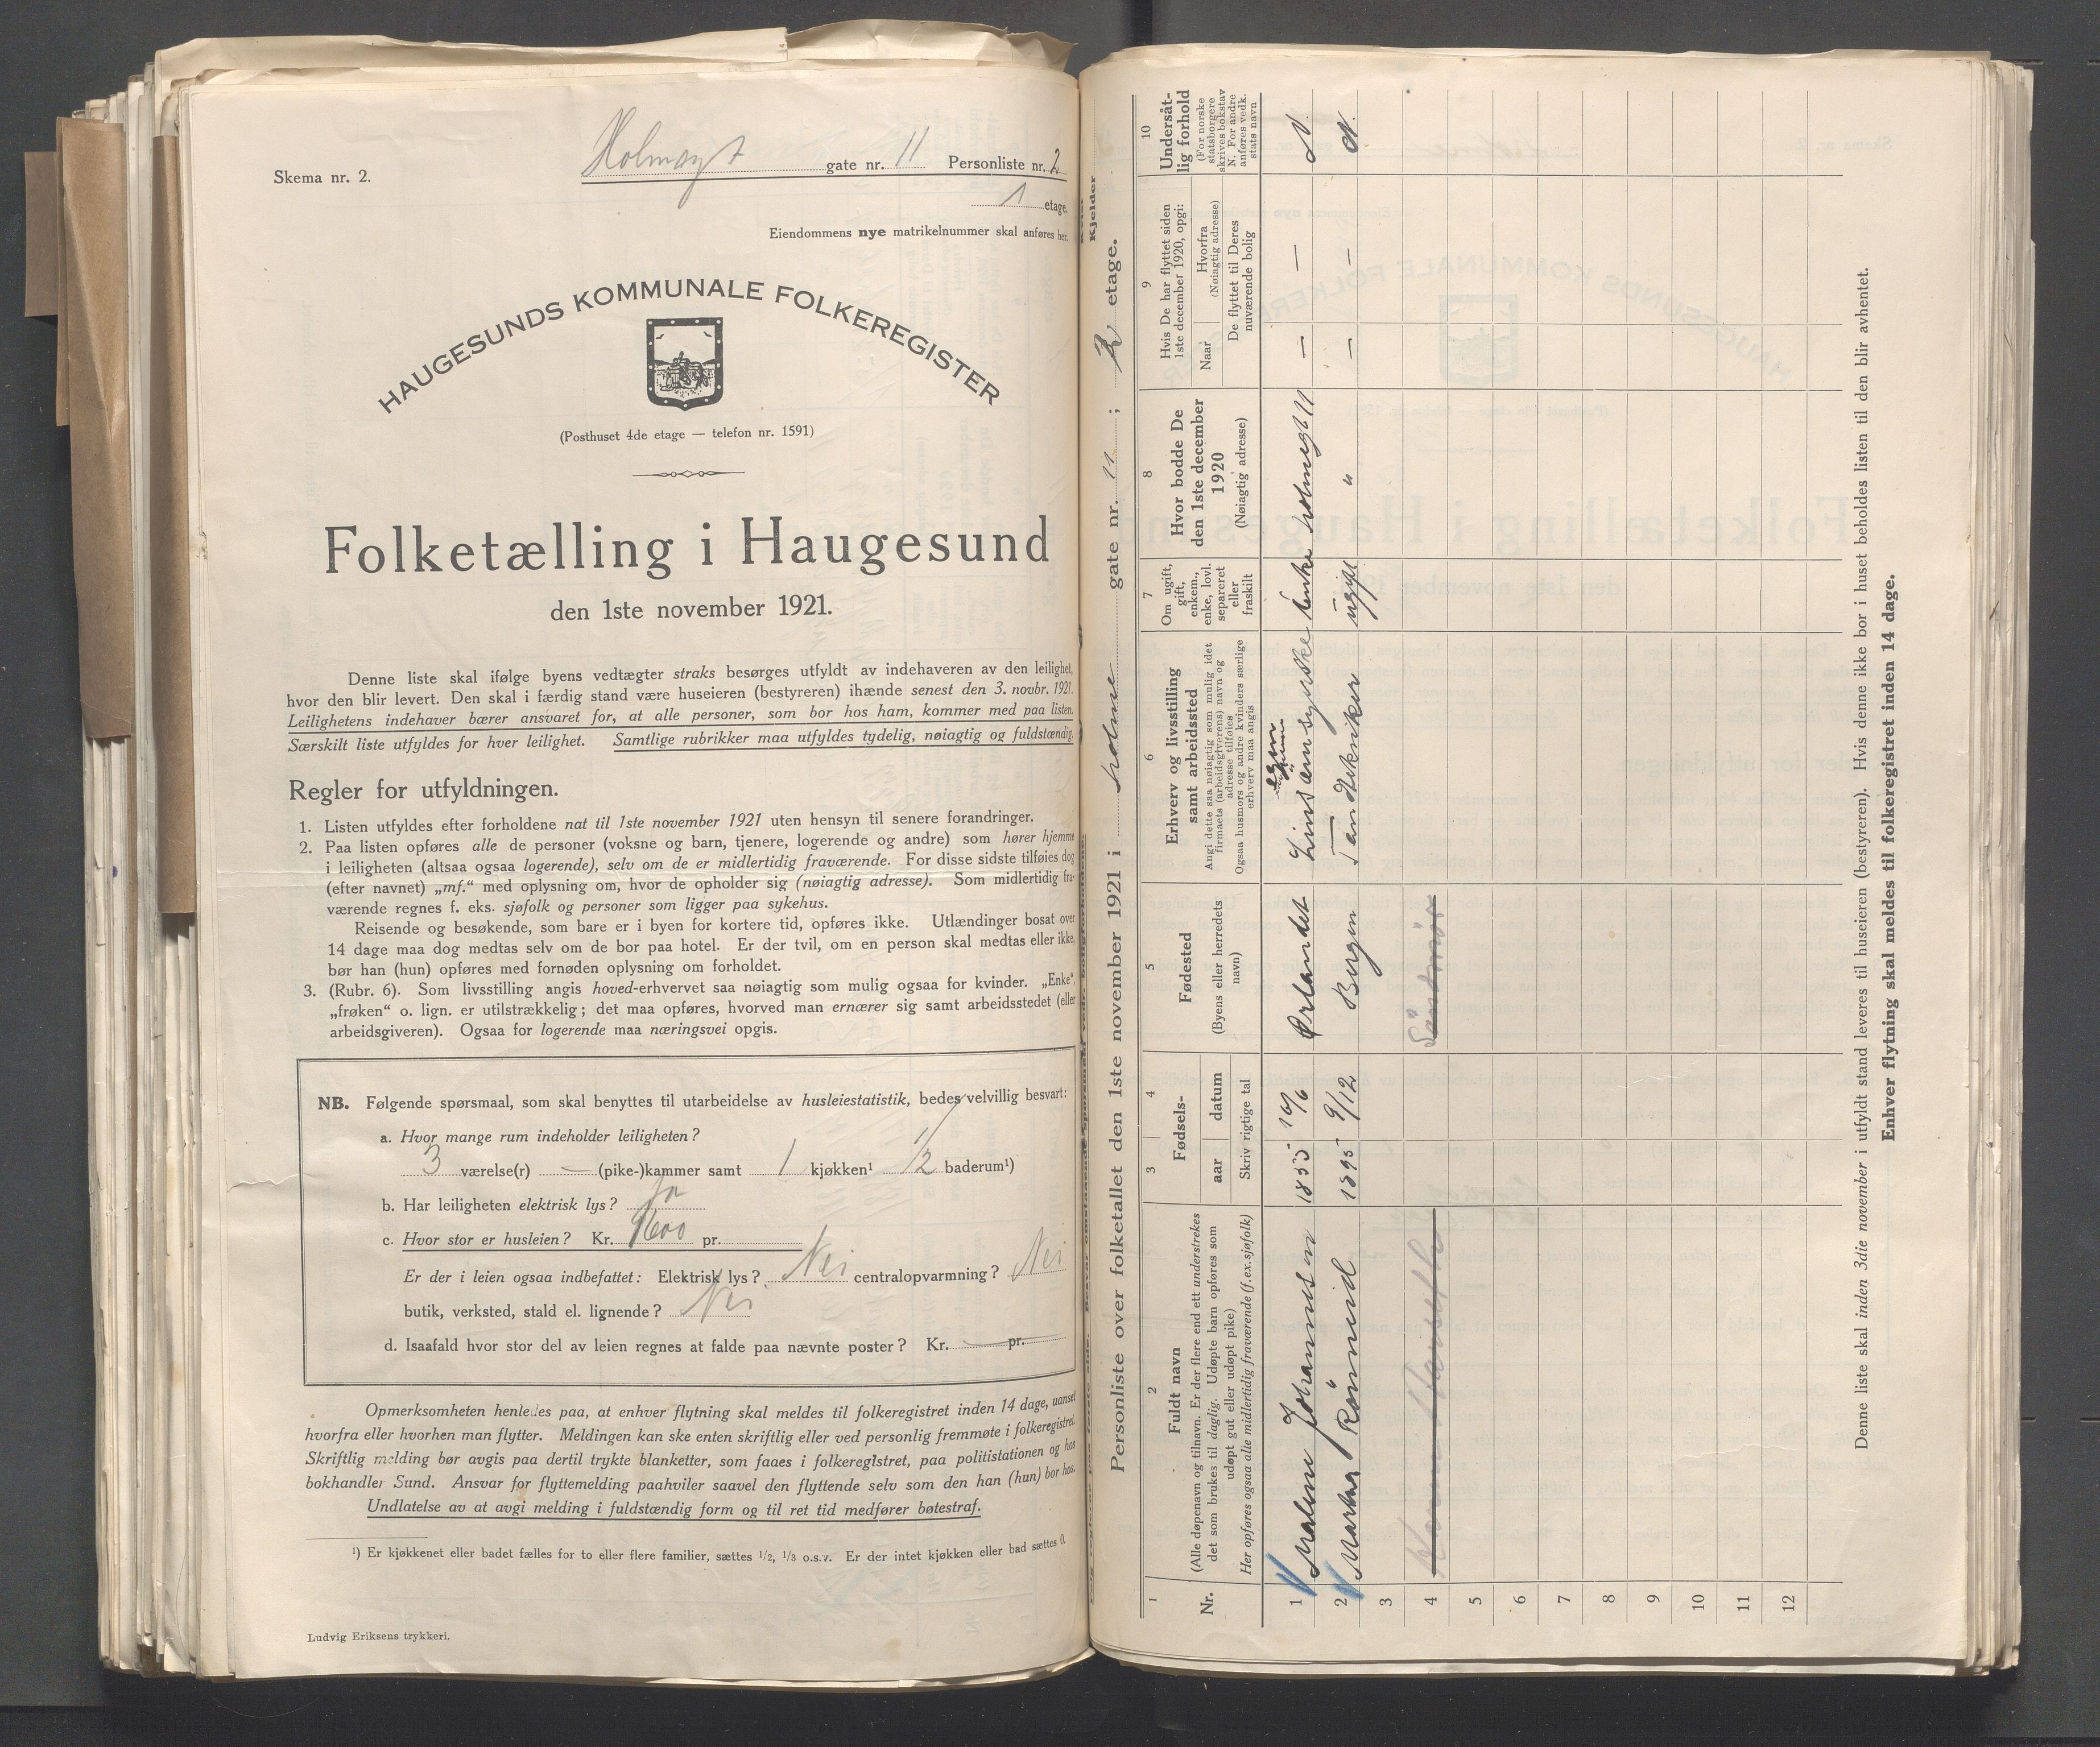 Skema nr. 2.
Holmegt gate nr. 11 Personliste nr. 2
1 etage.
Eiendommens nye matrikelnummer skal anføres her.
HAUGESUNDS KOMMUNALE FOLKEREGISTER
(Posthuset 4de etage — telefon nr. 1591)
Folketælling i Haugesund
den 1ste november 1921.
Denne liste skal ifølge byens vedtægter straks besørges utfyldt av indehaveren av den leilighet,
hvor den blir levert. Den skal i færdig stand være huseieren (bestyreren) ihænde senest den 3. novbr. 1921.
Leilighetens indehaver bærer ansvaret for, at alle personer, som bor hos ham, kommer med paa listen.
Særskilt liste utfyldes for hver leilighet. Samtlige rubrikker maa utfyldes tydelig, nøiagtig og fuldstændig.
Regler for utfyldningen.
1. Listen utfyldes efter forholdene nat til 1ste november 1921 uten hensyn til senere forandringer.
2. Paa listen opføres alle de personer (voksne og barn, tjenere, logerende og andre) som hører hjemme
i leiligheten (altsaa ogsaa logerende), selv om de er midlertidig fraværende. For disse sidste tilføies dog
(efter navnet) „mf.“ med oplysning om, hvor de opholder sig (nøiagtig adresse). Som midlertidig fra-
værende regnes f. eks. sjøfolk og personer som ligger paa sykehus.
Reisende og besøkende, som bare er i byen for kortere tid, opføres ikke. Utlændinger bosat over
14 dage maa dog medtas selv om de bor paa hotel. Er der tvil, om en person skal medtas eller ikke,
bør han (hun) opføres med fornøden oplysning om forholdet.
3. (Rubr. 6). Som livsstilling angis hoved-erhvervet saa nøiagtig som mulig ogsaa for kvinder. „Enke“,
„frøken“ o. lign. er utilstrækkelig; det maa opføres, hvorved man ernærer sig samt arbeidsstedet (eller
arbeidsgiveren). Ogsaa for logerende maa næringsvei opgis.
NB. Følgende spørsmaal, som skal benyttes til utarbeidelse av husleiestatistik, bedes velvillig besvart:
a. Hvor mange rum indeholder leiligheten?
3 værelse(r) — (pike-)kammer samt 1 kjøkken¹ 1/2 baderum¹)
b. Har leiligheten elektrisk lys? Ja
c. Hvor stor er husleien? Kr. 1600 pr.
Er der i leien ogsaa indbefattet: Elektrisk lys? Nei centralopvarmning? Nei
butik, verksted, stald el. lignende? Nei
d. Isaafald hvor stor del av leien regnes at falde paa nævnte poster? Kr. — pr. —
Opmerksomheten henledes paa, at enhver flytning skal meldes til folkeregistret inden 14 dage, uanset
hvorfra eller hvorhen man flytter. Meldingen kan ske enten skriftlig eller ved personlig fremmøte i folkeregistret.
Skriftlig melding bør avgis paa dertil trykte blanketter, som faaes i folkeregistret, paa politistationen og hos
bokhandler Sund. Ansvar for flyttemelding paahviler saavel den flyttende selv som den han (hun) bor hos.
Undlatelse av at avgi melding i fuldstændig form og til ret tid medfører bøtestraf.
¹) Er kjøkkenet eller badet fælles for to eller flere familier, sættes 1/2, 1/3 o.s.v. Er der intet kjøkken eller bad sættes 0.
Ludvig Eriksens trykkeri.
Kjelder
Personliste over folketallet den 1ste november 1921 i Holme gate nr. 11 ; 2 etage.
1 2 3 4 5 6 7 8 9 10
Nr.
Fuldt navn
(Alle døpenavn og tilnavn. Er der flere end ett understrekes
det som brukes til daglig. Udøpte barn opføres som
udøpt gut eller udøpt pike)
Her opføres ogsaa alle midlertidig fraværende (f.ex. sjøfolk)
Fødsels-
aar datum
Skriv rigtige tal
Fødested
(Byens eller herredets
navn)
Erhverv og livsstilling
samt arbeidssted
Angi dette saa nøiagtig som mulig idet
firmaets (arbeidsgiverens) navn og
adresse tilføies
Ogsaa husmors og andre kvinders særlige
erhverv maa angis
Om ugift,
gift,
enkem.,
enke, lovl.
separeret
eller
fraskilt
Hvor bodde De
den 1ste december
1920
(Nøiagtig adresse)
Hvis De har flyttet siden
1ste december 1920, opgi:
Naar
Hvorfra
(Nøiagtig adresse)
De flyttet til Deres
nuværende bolig
Undersåt-
lig forhold
(For norske
statsborgere
skrives bokstav
N. For andre
anføres vedk.
stats navn
1 Malene Johannesen 1855 Ørlandet Linsømsyerske Enke Holmegt 11 — — N.
2 Martha Rømmid 1895 9/12 Bergen Tandtekniker ugift " — — N.
3
4 Søndmør
5
6
7
8
9
10
11
12
Denne liste skal inden 3die november i utfyldt stand leveres til huseieren (bestyreren). Hvis denne ikke bor i huset beholdes listen til den blir avhentet.
Enhver flytning skal meldes til folkeregistret inden 14 dage.